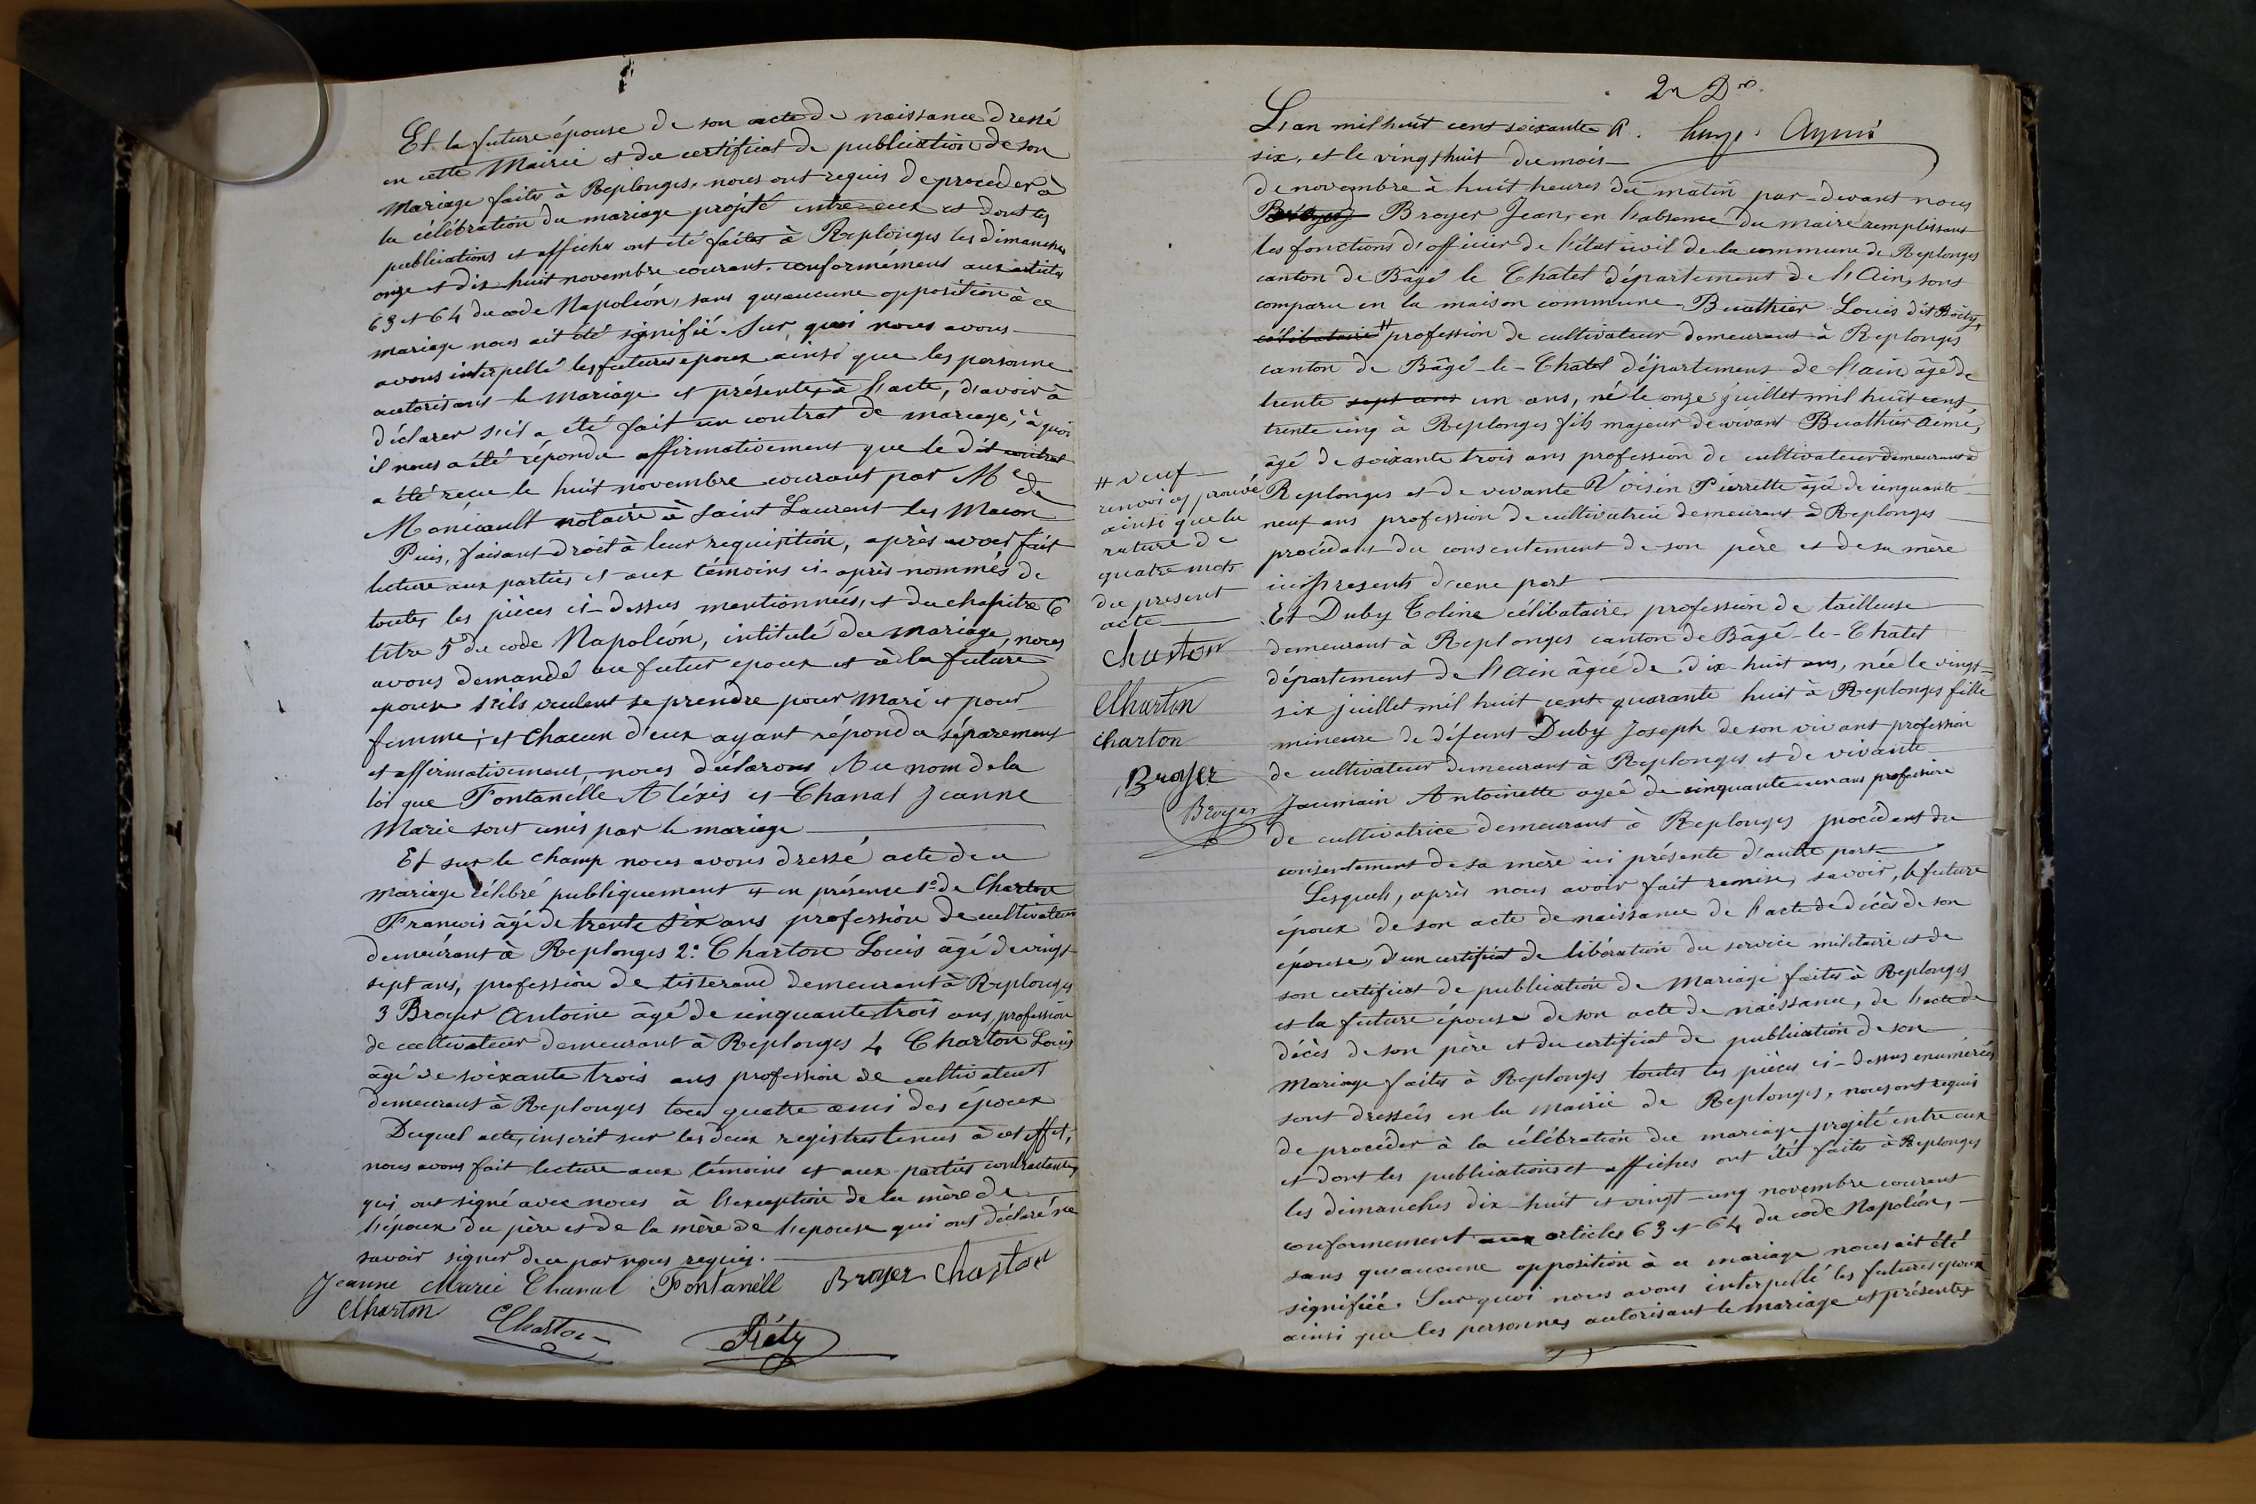 Et la future épouse de son acte de naissance dressé
en cette Mairie et du certificat de publication de son
Mariage faites à Replonges, nous ont requis de proceder à
la célébration du mariage projeté entre eux et dont les
publications et affiches ont été faites à Replonges les dimanches
onze et dix huit novembre courant. conformément aux articles
63 et 64 du code Napoléon, sans qu'aucune opposition à ce
mariage nous ait été signifié. Sur quoi nous avons
avons interpellé les futures epoux ainsi que les personne
autorisant le mariage et présentes à l'acte, d'avoir à
déclarer s'il a été fait un contrat de mariage, à quoi
il nous a été répondu affirmativement que le dit contrat
a été reçu le huit novembre courant par Me de
notaire à Saint Laurent les Macon
Puis, faisant droit à leur requisition, après avoir fait
lecture aux parties et aux témoins ci-après nommés de
toutes les pièces ci-dessus mentionnées, et du chapitre 6
titre 5 du code Napoléon, intitulé du mariage, nous
avons demandé au futur epoux et à la future
epouse s'ils veulent se prendre pour Mari et pour
femme; et Chacun d'eux ayant répondu séparement
et affirmativement, nous déclarons Au nom de la
loi que Fontanelle Aléxis et Chanal Jeanne
Marie sont unis par le mariage
Et sur le champ nous avons dressé acte de ce
mariage célébré publiquement et en présence 1° de Charton
Francois âgé de trente six ans profession de cultivateur
demeurant à Replonges 2° Charton Louis âgé de vingt
sept ans, profession de tisserand demeurant à Replonges
3 Broyer Antoine âgé de cinquante trois ans profession
de cultivateur demeurant à Replonges 4 Charton Louis
âgé de soixante trois ans profession de cultivateur
demeurant à Replonges tous quatre amis des époux
Duquel acte, inscrit sur les deux registres tenus à cet effet,
nous avons fait lecture aux témoins et aux parties contractantes
qui ont signé avec nous à l'exception de la mère de
l'époux du père et de la mère de l'epouse qui ont déclaré ne
savoir signer de ce par nous requis.
Jeanne Marie Chanal Fontanell Broyer Charton
Charton Charton Féty
L'an mil huit cent soixante
six, et le vingt huit du mois
de novembre à huit heures du matin par-devant nous
Broyer Broyer Jean, en l'absence du maire remplissant
les fonctions d'officier de l'état civil de la commune de Replonges
canton de Bâgé le Chatel département de l'Ain, sont
comparu en la maison commune Buathier Louis dit
célibataire # profession de cultivateur demeurant à Replonges
canton de Bâgé-le-Chatel département de l'ain âgé de
trente sept ans un ans, né le onze juillet mil huit cent
trente cinq à Replonges fils majeur de vivant Buathier Aimé,
âgé de soixante trois ans profession de cultivateur demeurant à
Replonges et de vivante Voisin Pierrette âgée de cinquante
neuf ans profession de cultivatrice demeurant à Replonges
procédant du consentement de son père et de sa mère
ici présents d'une part
Et Duby Toline célibataire, profession de tailleuse
demeurant à Replonges canton de Bâgé-le-Chatel
département de l'Ain âgée de dix huit ans, née le vingt
six juillet mil huit cent quarante huit à Replonges fille
mineure de défunt Duby Joseph de son vivant profession
de cultivateur demeurant à Replonges et de vivante
Jaumain Antoinette agée de cinquante un ans profession
de cultivatrice demeurant à Replonges procédant du
consentement de sa mère ici présente d'autre part
Lesquels, après nous avoir fait remise, savoir, le future
époux de son acte de naissance de l'acte de décès de son
épouse, d'un certificat de libération du service militaire et de
son certificat de publication de Mariage faites à Replonges
et la future épouse de son acte de naissance, de l'acte de
décès de son père et du certificat de publication de son
Mariage faites à Replonges toutes les pièces ci-dessus enumérées
sont dressées en la mairie de Replonges, nous ont requis
de proceder à la célébration du mariage projeté entre eux
et dont les publications et affiches ont été faites à Replonges
les dimanches dix-huit et vingt-cinq novembre courant
conformement aux articles 63 et 64 du code Napoléon,
sans qu'aucune opposition à ce mariage nous ait été
signifiée. Sur quoi nous avons interpellé les futures epoux
ainsi que les personnes autorisant le mariage et présentes
# veuf
renvoi approuvé
ainsi que la
rature de
quatre mots
du present
acte
Charton
Charton
Charton
Broyer
Broyer